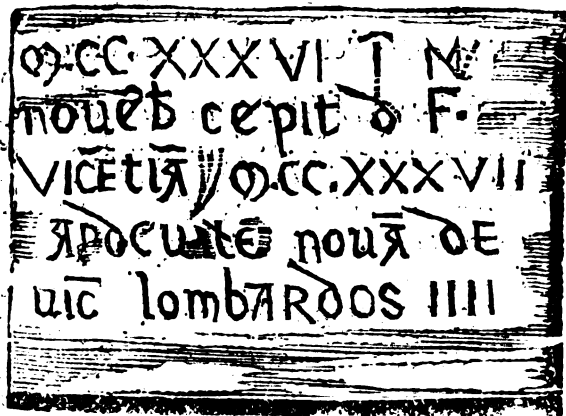 M.CC.XXXVI Ī M
noueƀ cepit d F.
VICĒtIĀ M.CC.XXXVII
APD CuRtĒ nouĀ dE
uic̄ lombARdOS IIII